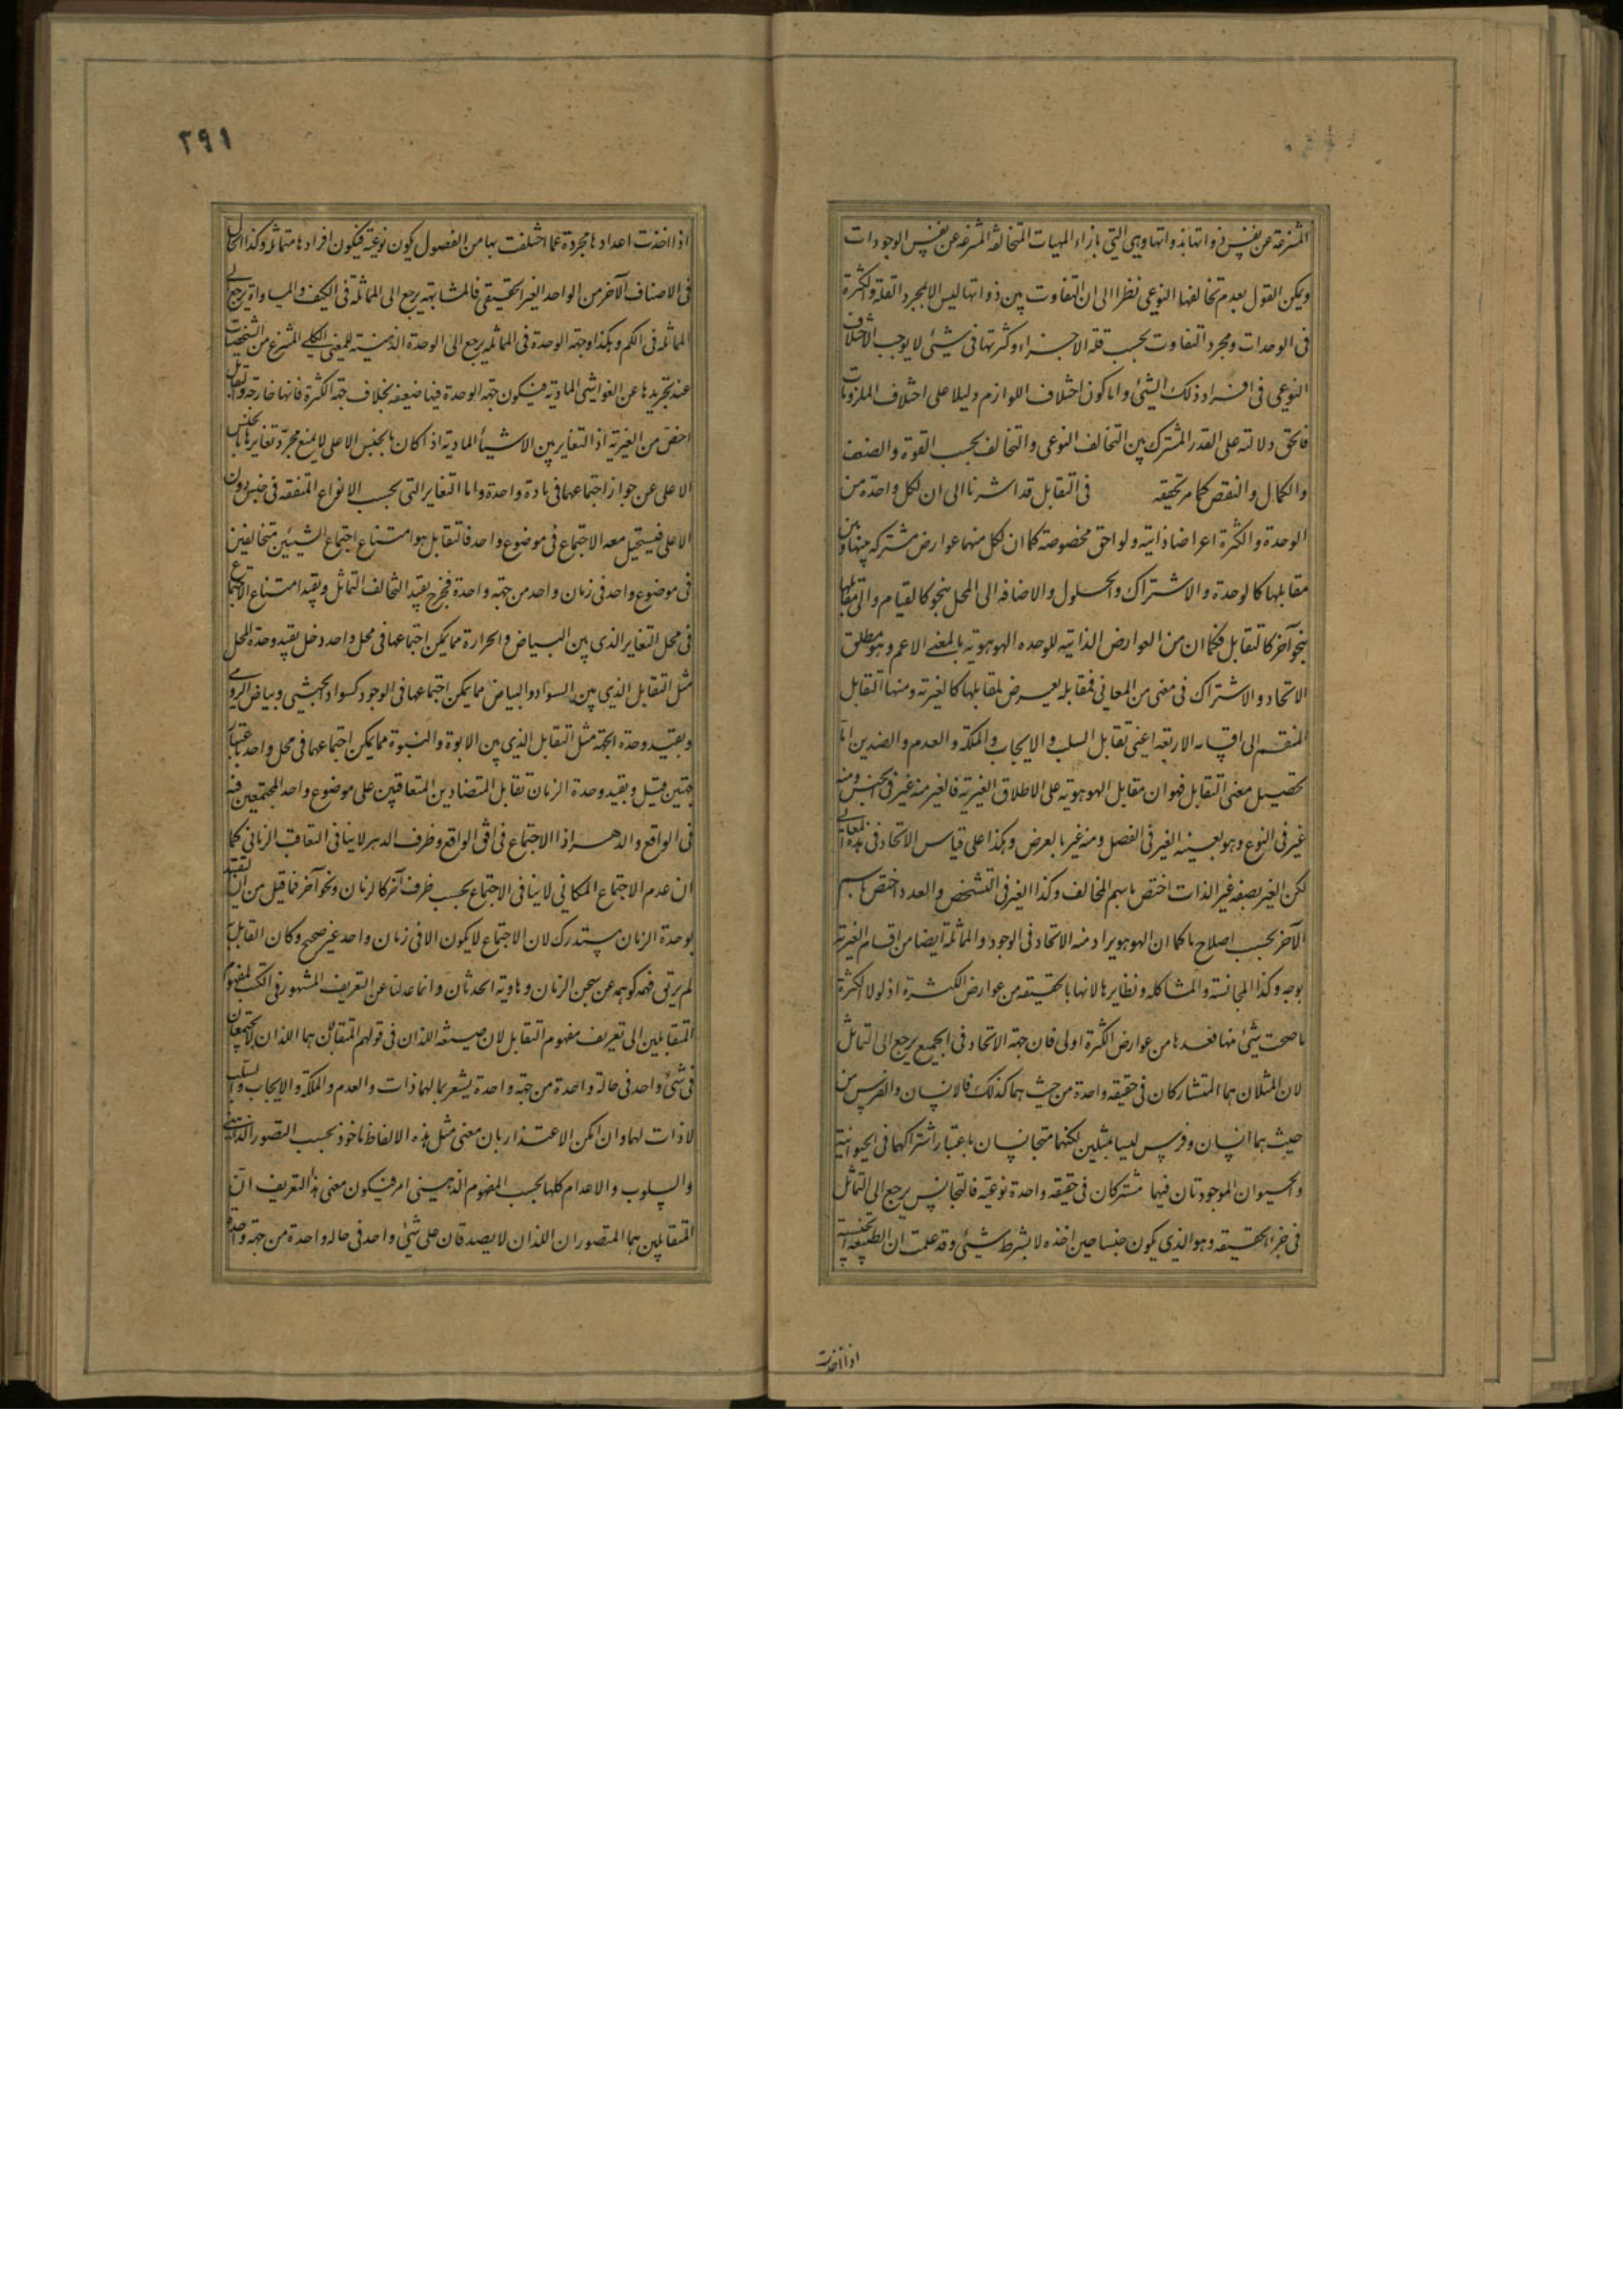 المنتزعة عن نفس ذواتها بذواتها وهي التي بازاء المهيات المتخالفة المنتزعة عن نفس الوجودات
ويمكن القول بعدم تخالفها النوعي نظرا الى ان التفاوت بين ذواتها ليس الا بمجرد القلة والكثرة
في الوحدات ومجرد التفاوت بحسب قلة الاجزاء وكثرتها في شيئ لا يوجب الاختلاف
النوعي في افراد ذلك الشيئ واما كون اختلاف اللوازم دليلا على اختلاف الملزومات
فالحق دلالته على القدر المشترك بين التخالف النوعي والتخالف بحسب القوة والضعف
والكمال والنقص كما مر تحقيقه في التقابل قد اشرنا الى ان لكل واحدة من
الوحدة والكثرة اعراضا ذاتية ولواحق مخصوصة كما ان لكل منهما عوارض مشتركه بينها وبين
مقابلها كالوحدة والاشتراك والحلول والاضافه الى المحل بنحو كالقيام والى مقابلها
بنحو آخر كالتقابل فكما ان من العوارض الذاتيه للوحده الهوهوية بالمعنى الاعم وهو مطلق
الاتحاد والاشتراك في معنى من المعاني فمقابله يعرض لمقابلها كالغيرية ومنها التقابل
المنقسم الى اقسامه الاربعة اعني تقابل السلب والايجاب والملكة والعدم والضدين اما
تحصيل معنى التقابل فهو ان مقابل الهوهوية على الاطلاق الغيرية فالغير منه غير في الجنس ومنه
غير في النوع وهو بعينه الغير في الفصل ومنه غير بالعرض وهكذا على قياس الاتحاد في هذه المعاني
لكن الغير بصفه غير الذات اختص باسم المخالف وكذا الغير في التشخص والعدد اختص باسم
الآخر بحسب اصلاح ما كما ان الهوهو يراد منه الاتحاد في الوجود والمماثلة ايضا من اقسام الغيرية
بوجه وكذا المجانسة والمشاكله ونظايرها لانها بالحقيقه من عوارض الكثرة اذ لولا الكثرة
ما صحت شيئ منها فعدها من عوارض الكثرة اولى فان جهة الاتحاد في الجميع يرجع الى التماثل
لان المثلان هما المتشاركان في حقيقه واحدة من حيث هما كذلك فالانسان والفرس من
حيث هما انسان وفرس ليسا بمثلين لكنهما متجانسان باعتبار اشتراكهما في الحيوانية
والحيوان الموجودتان فيهما مشتركان في حقيقه واحدة نوعيه فالتجانس يرجع الى التماثل
في جزء الحقيقه وهو الذي يكون جنسا حين اخذه لا بشرط شيئى وقد علمت ان الطبيعه الجنسية
اذا اخذت
٢٩١
اذا اخذت اعدادها مجردة عما اختلفت بها من الفصول يكون نوعية فيكون افرادها متماثله وكذا الحال
في الاصناف الآخر من الواحد الغير الحقيقي فالمشابهه يرجع الى المماثلة في الكيف والمساواة يرجع الى
المماثلة في الكم وهكذا وجهة الوحدة في المماثله يرجع الى الوحدة الذهنية للمعنى الكلى المنتزع من الشخصيات
عند تجريدها عن الغواشي المادية فيكون جهة الوحدة فيها ضعيفه بخلاف جهة الكثرة فانها خارجة والتقابل
اخص من الغيرية اذ التغاير بين الاشيأ المادية اذا كان بالجنس الاعلى لا يمنع مجرد تغايرها بالجنس
الاعلى عن جواز اجتماعهما في مادة واحدة واما التغاير التي بحسب الانواع المتفقه في جنس دون
الاعلى فيستحيل معه الاجتماع في موضوع واحد فالتقابل هو امتناع اجتماع الشيئين متخالفين
في موضوع واحد في زمان واحد من جهة واحدة فخرج بقيد التخالف التماثل وبقيد امتناع الاجتماع
في محل التغاير الذي بين البياض والحرارة مما يمكن اجتماعهما في محل واحد ودخل بقيد وحدة المحل
مثل التقابل الذي بين السواد والبياض مما يمكن اجتماعهما في الوجود كسواد الحبشي وبياض الرومي
وبقيد وحدة الجهة مثل التقابل الذي بين الابوة والبنوة مما يمكن اجتماعهما في محل واحد باعتبار
جهتين قيل وبقيد وحدة الزمان تقابل المتضادين المتعاقبين على موضوع واحد المجتمعين فيه
في الواقع والدهر اذ الاجتماع في افق الواقع وظرف الدهر لا ينافي التعاقب الزماني كما
ان عدم الاجتماع المكاني لا ينافي الاجتماع بحسب ظرف آخر كالزمان ونحو آخر فما قيل من ان التقييد
بوحدة الزمان مستدرك لان الاجتماع لا يكون الا في زمان واحد غير صحيح وكان القائل به
لم يرتق فهمه كوهمه عن سجن الزمان وهاوية الحدثان وانما عدلنا عن التعريف المشهور في الكتب لمفهوم
المتقابلين الى تعريف مفهوم التقابل لان صيغه اللذان في قولهم المتقابلان هما اللذان لا يجتمعان
في شيئ واحد في حالة واحدة من جهة واحدة يشعر بما لهما ذات والعدم والملكة والايجاب والسلب
لا ذات لهما وان امكن الاعتذار بان معنى مثل هذه الالفاظ ماخوذ بحسب التصور الذهني
والسلوب والاعدام كلها بحسب المفهوم الذهيني امر فيكون معنى هذا التعريف ان
المتقابلين هما المتصوران اللذان لا يصدقان على شيئ واحد في حاله واحدة من جهة واحدة